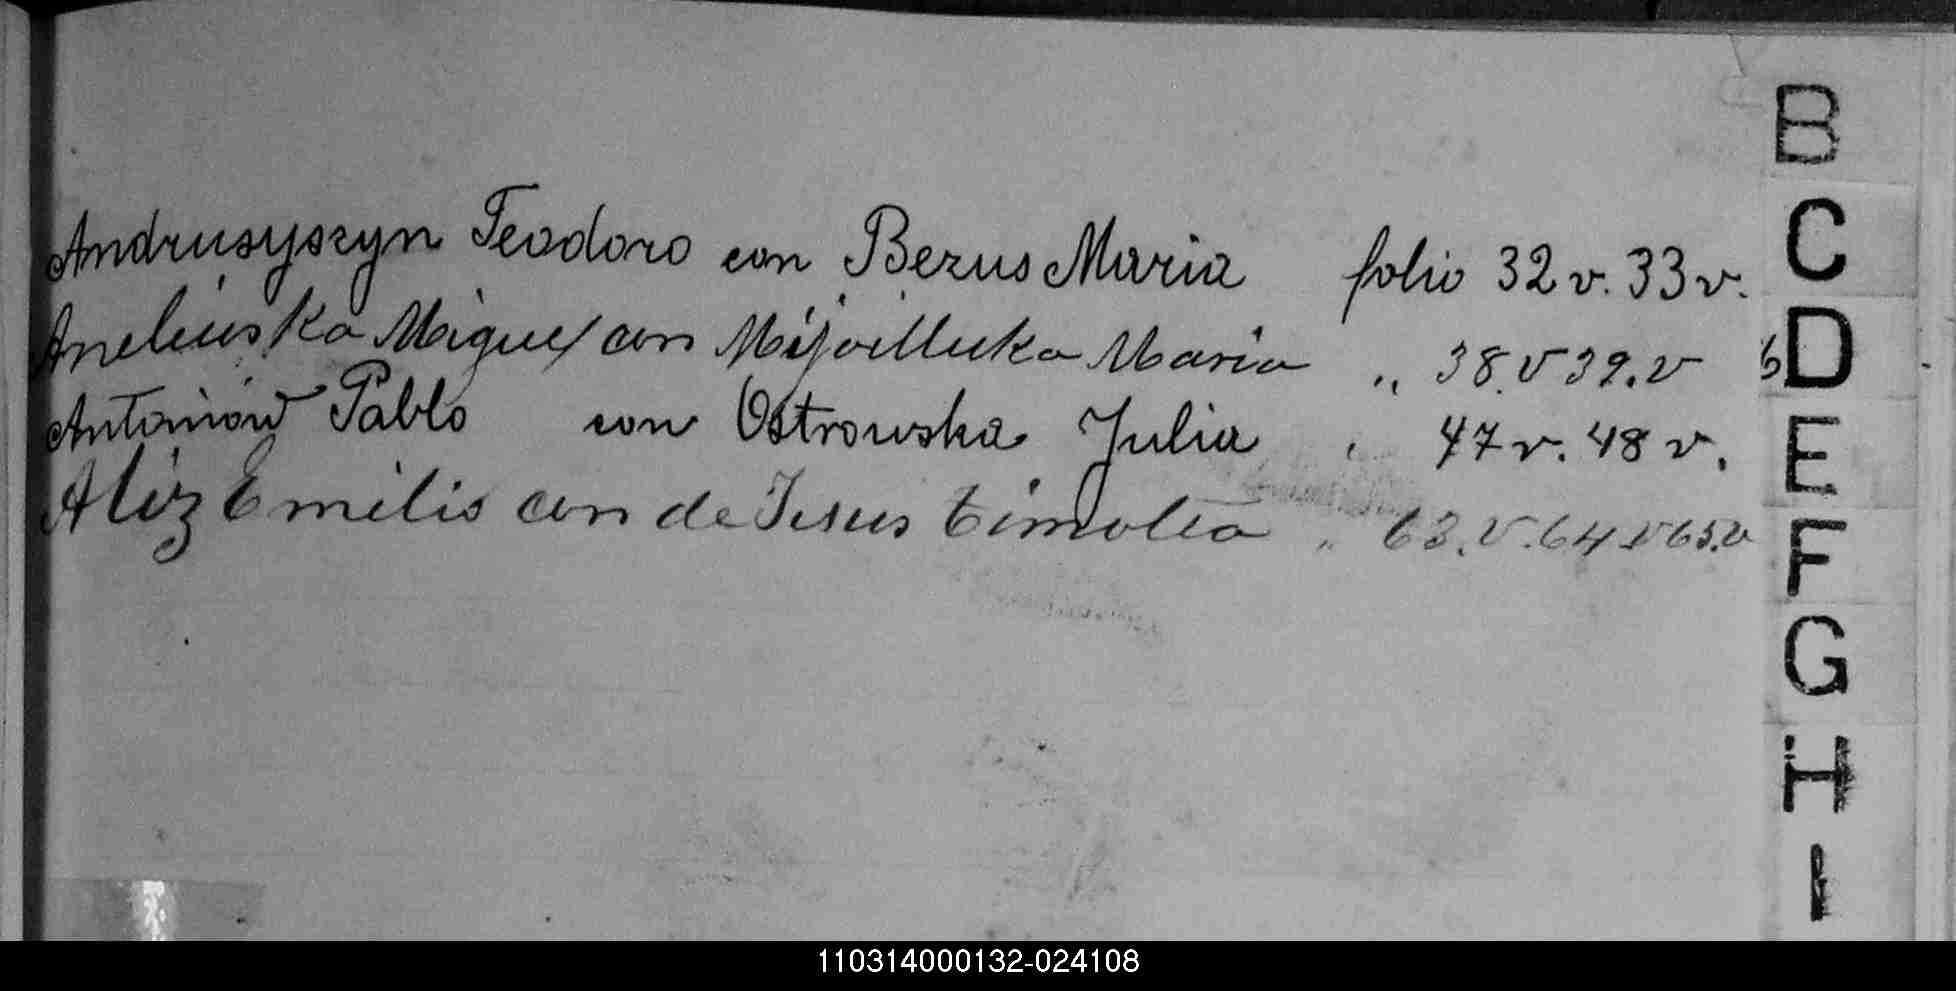 Andrusyszyn Teodoro con Bezus Maria folio 32 v. 33 v.
Aneliuska Miguel con Mijoilluka Maria " 38. v 39. v
Antoniów Pablo con Ostrowska Julia " 47 v. 48 v.
Aliz Emilio con de Jesus Timotea " 63. v. 64 v 65. v
B
C
D
E
F
G
H
I
110314000132-024108